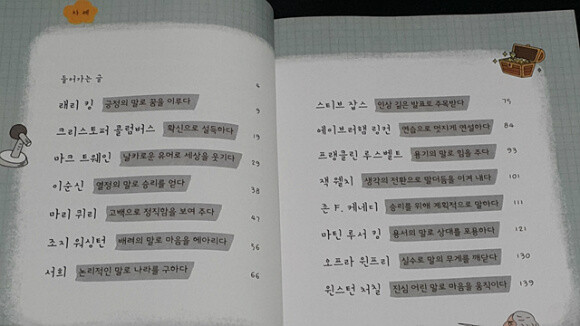 차례
들어가는 글 4
래리 킹 긍정의 말로 꿈을 이루다 9
크리스토퍼 콜럼버스 확신으로 설득하다 19
마크 트웨인 날카로운 유머로 세상을 웃기다 29
이순신 열정의 말로 승리를 얻다 38
마리 퀴리 고백으로 정직함을 보여 주다 47
조지 워싱턴 배려의 말로 마음을 헤아리다 56
서희 논리적인 말로 나라를 구하다 66
스티브 잡스 인상 깊은 발표로 주목받다 75
에이브러햄 링컨 연습으로 멋지게 연설하다 84
프랭클린 루스벨트 용기의 말로 힘을 주다 93
잭 웰치 생각의 전환으로 말더듬을 이겨 내다 101
존 F. 케네디 승리를 위해 계획적으로 말하다 111
마틴 루서 킹 용서의 말로 상대를 포용하다 121
오프라 윈프리 실수로 말의 무게를 깨닫다 130
윈스턴 처칠 진심 어린 말로 마음을 움직이다 139